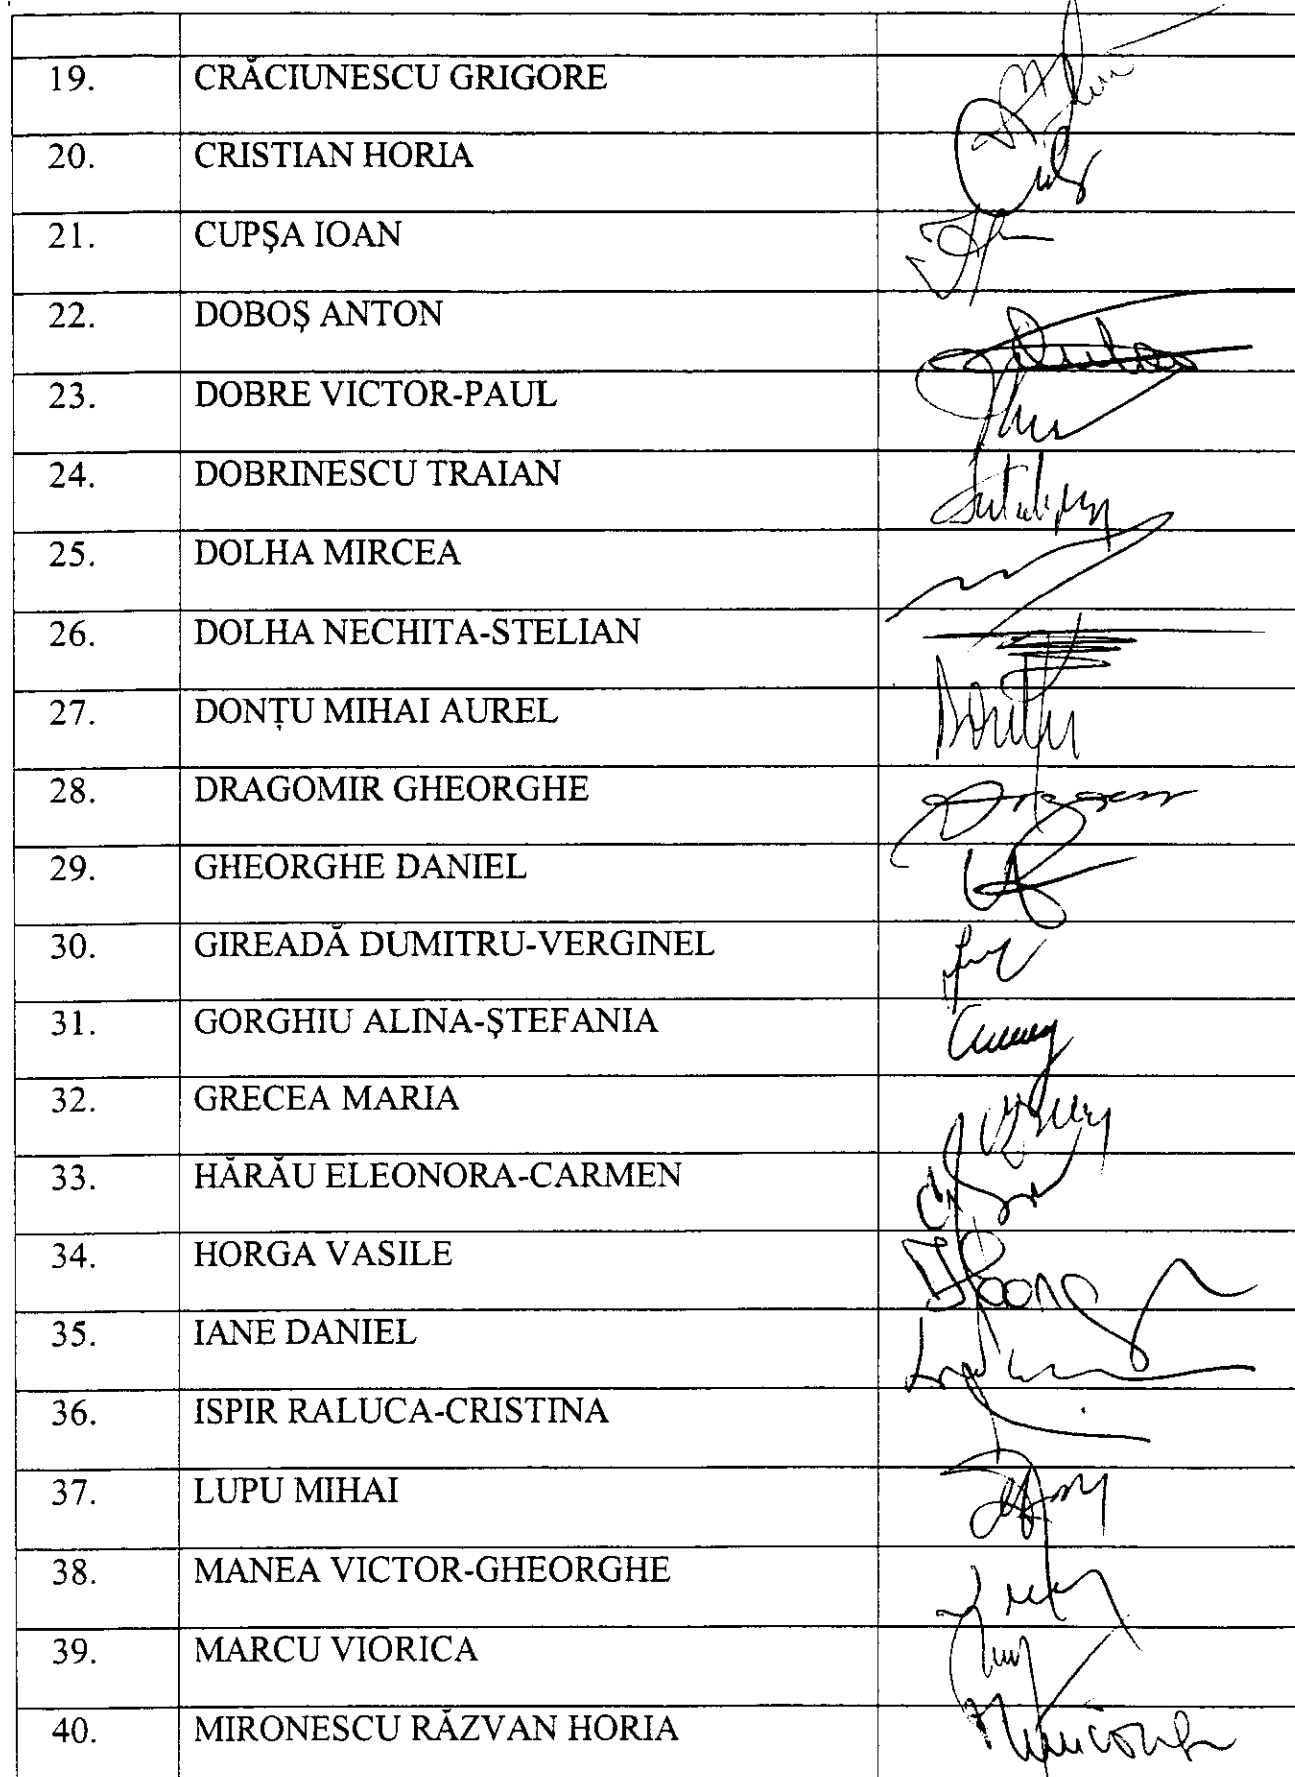 19. CRĂCIUNESCU GRIGORE
20. CRISTIAN HORIA
21. CUPŞA IOAN
22. DOBOŞ ANTON
23. DOBRE VICTOR-PAUL
24. DOBRINESCU TRAIAN
25. DOLHA MIRCEA
26. DOLHA NECHITA-STELIAN
27. DONŢU MIHAI AUREL
28. DRAGOMIR GHEORGHE
29. GHEORGHE DANIEL
30. GIREADĂ DUMITRU-VERGINEL
31. GORGHIU ALINA-ŞTEFANIA
32. GRECEA MARIA
33. HĂRĂU ELEONORA-CARMEN
34. HORGA VASILE
35. IANE DANIEL
36. ISPIR RALUCA-CRISTINA
37. LUPU MIHAI
38. MANEA VICTOR-GHEORGHE
39. MARCU VIORICA
40. MIRONESCU RĂZVAN HORIA